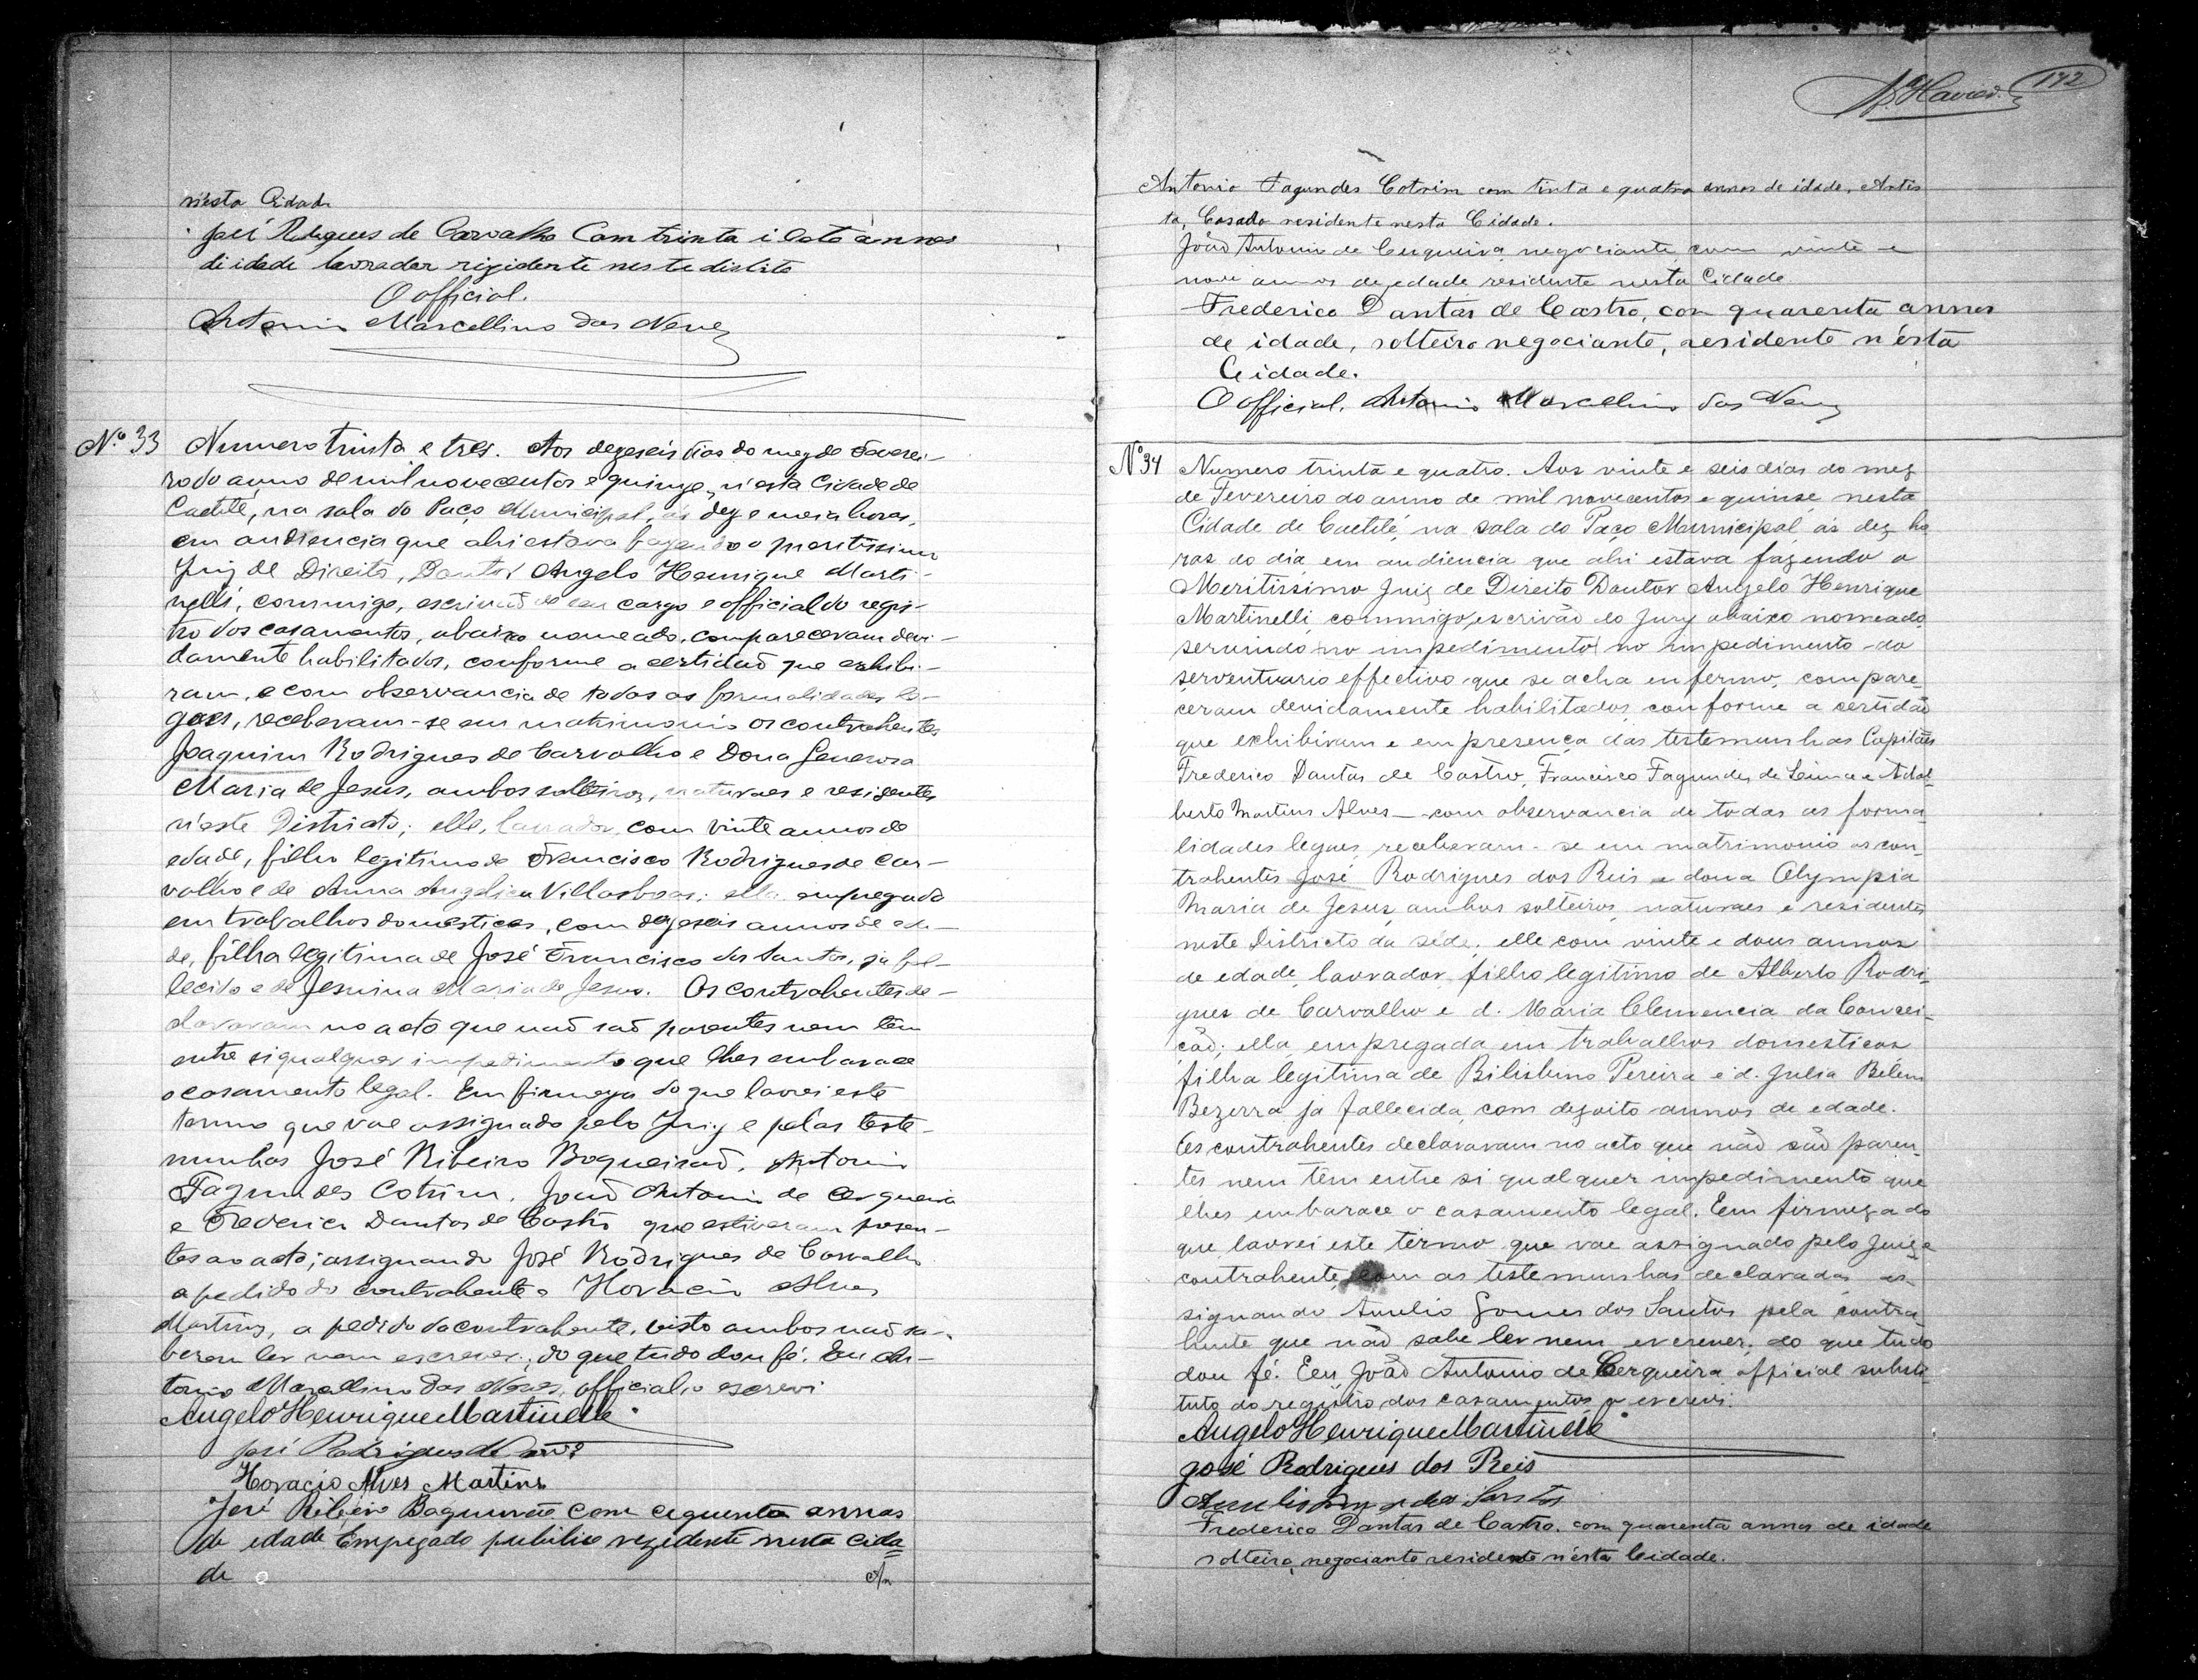 n'esta Cidade
José Rodrigues de Carvalho Com trinta i annos
di idade lavrador rizidente neste distito
O official.
Antonio Marcellino das Neves
Nº 33 Numero trinta e tres. Aos dezeseis dias do mez de Feverei-
ro do anno de mil novecentos e quinze, n'esta Cidade de
Caetité, na sala do Paço Municipal, ás dez e meia horas,
em audiencia que ahi estava fazendo o meritissimo
Juiz de Direito, Doutor Angelo Henrique Marti-
nelli, commigo, escrivão de seu cargo e official do regis-
tro dos casamentos, abaixo nomeado, compareceram devi-
damente habilitados, conforme a certidão que exhibi-
ram, e com observancia de todas as formalidades le-
gaes, receberam-se em matrimonio os contrahentes
Joaquim Rodrigues de Carvalho e Dona Generosa
Maria de Jesus, ambos solteiros, naturaes e residentes
n'este Districto; elle, lavrador, com vinte annos de
edade, filho legitimo de Francisco Rodrigues de Car-
valho e de Anna Angelica Villasboas; ella empregada
em trabalhos domesticos, com dezeseis annos de eda-
de, filha legitima de José Francisco dos Santos, já fal-
lecido e de Jesuina Maria de Jesus. Os contrahentes de-
clararam no acto que não são parentes nem têm
entre si qualquer impedimento que lhes embarace
o casamento legal. Em firmeza do que lavrei este
termo que vae assignado pelo Juiz e pelas teste-
munhas José Ribeiro Boqueirão, Antonio
Fagundes Cotrim, João Antonio de Cerqueira
e Frederico Dantas de Castro que estiveram presen-
tes ao acto; assignando José Rodrigues de Carvalho
a pedido do contrahente e Horacio Alves
Martins, a pedido da contrahente, visto ambos não sa-
berem ler nem escrever; do que tudo dou fé. Eu An-
tonio Marcellino das Neves, official, o escrevi
Angelo Henrique Martinelli
José Rodrigues de
Horacio Alves Martins
José Ribeiro Boqueirão com cequenta annos
de edade Empegado publico rezidente nesta cida-
de
172
Antonio Fagundes Cotrim com tinta e quatro annos de idade, Artis
ta, Casado residente nesta Cidade.
João Antonio de Cerqueira negociante com vinte e
nove annos de edade residente nesta Cidade
Frederico Dantas de Castro, con quarenta annos
de idade, solteiro negociante, residente n'ésta
Cidade.
O official, Antonio Marcellino das Neves
Nº 34 Numero trinta e quatro. Aos vinte e seis dias do mez
de Fevereiro do anno de mil novecentos e quinse, nesta
Cidade de Caetité, na sala do Paço Municipal, ás dez ho
ras do dia, em audiencia que ahi estava fazendo o
Meritissimo Juiz de Direito Doutor Angelo Henrique
Martinelli, commigo, escrivão do Jury abaixo nomeado,
servindo no impedimento no impedimento do
serventuario effectivo que se acha enfermo, compare-
ceram devidamente habilitados, conforme a certidão
que exhibiram e em presença das testemunhas Capitães
Frederico Dantas de Castro, Francisco Fagundes de Lima e Adal-
berto Martins Alves — com observancia de todas as forma-
lidades legaes, receberam-se em matrimonio os con-
trahentes José Rodrigues dos Reis e dona Olympia
Maria de Jesus, ambos solteiros, naturaes e residentes
neste Districto da séde; elle com vinte e dous annos
de edade, lavrador, filho legitimo de Alberto Rodri-
gues de Carvalho e d. Maria Clemencia da Concei-
ção; ella, empregada em trabalhos domesticos
filha legitima de Pereira e d. Julia Belém
Bezerra já fallecida, com dezoito annos de edade.
Os contrahentes declararam no acto que não são paren-
tes nem têm entre si qualquer impedimento que
lhes embarace o casamento legal. Em firmeza do
que lavrei este termo que vae assignado pelo Juiz e
contrahente, com as testemunhas declaradas as-
signando Aurelio Gomes dos Santos pela contra-
hente que não sabe ler nem escrever, do que tudo
dou fé. Eeu, João Antonio de Cerqueira, official substi-
tuto do registro dos casamentos, o escrevi.
Angelo Henrique Martinelli
José Rodrigues dos Reis
Santos
Frederico Dantas de Castro, com quarenta annos de idade
solteiro, negociante residente n'ésta Cidade.